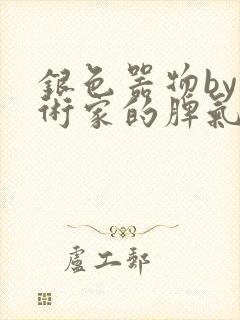 銀色器物by
術家的脾氣
盧工郵